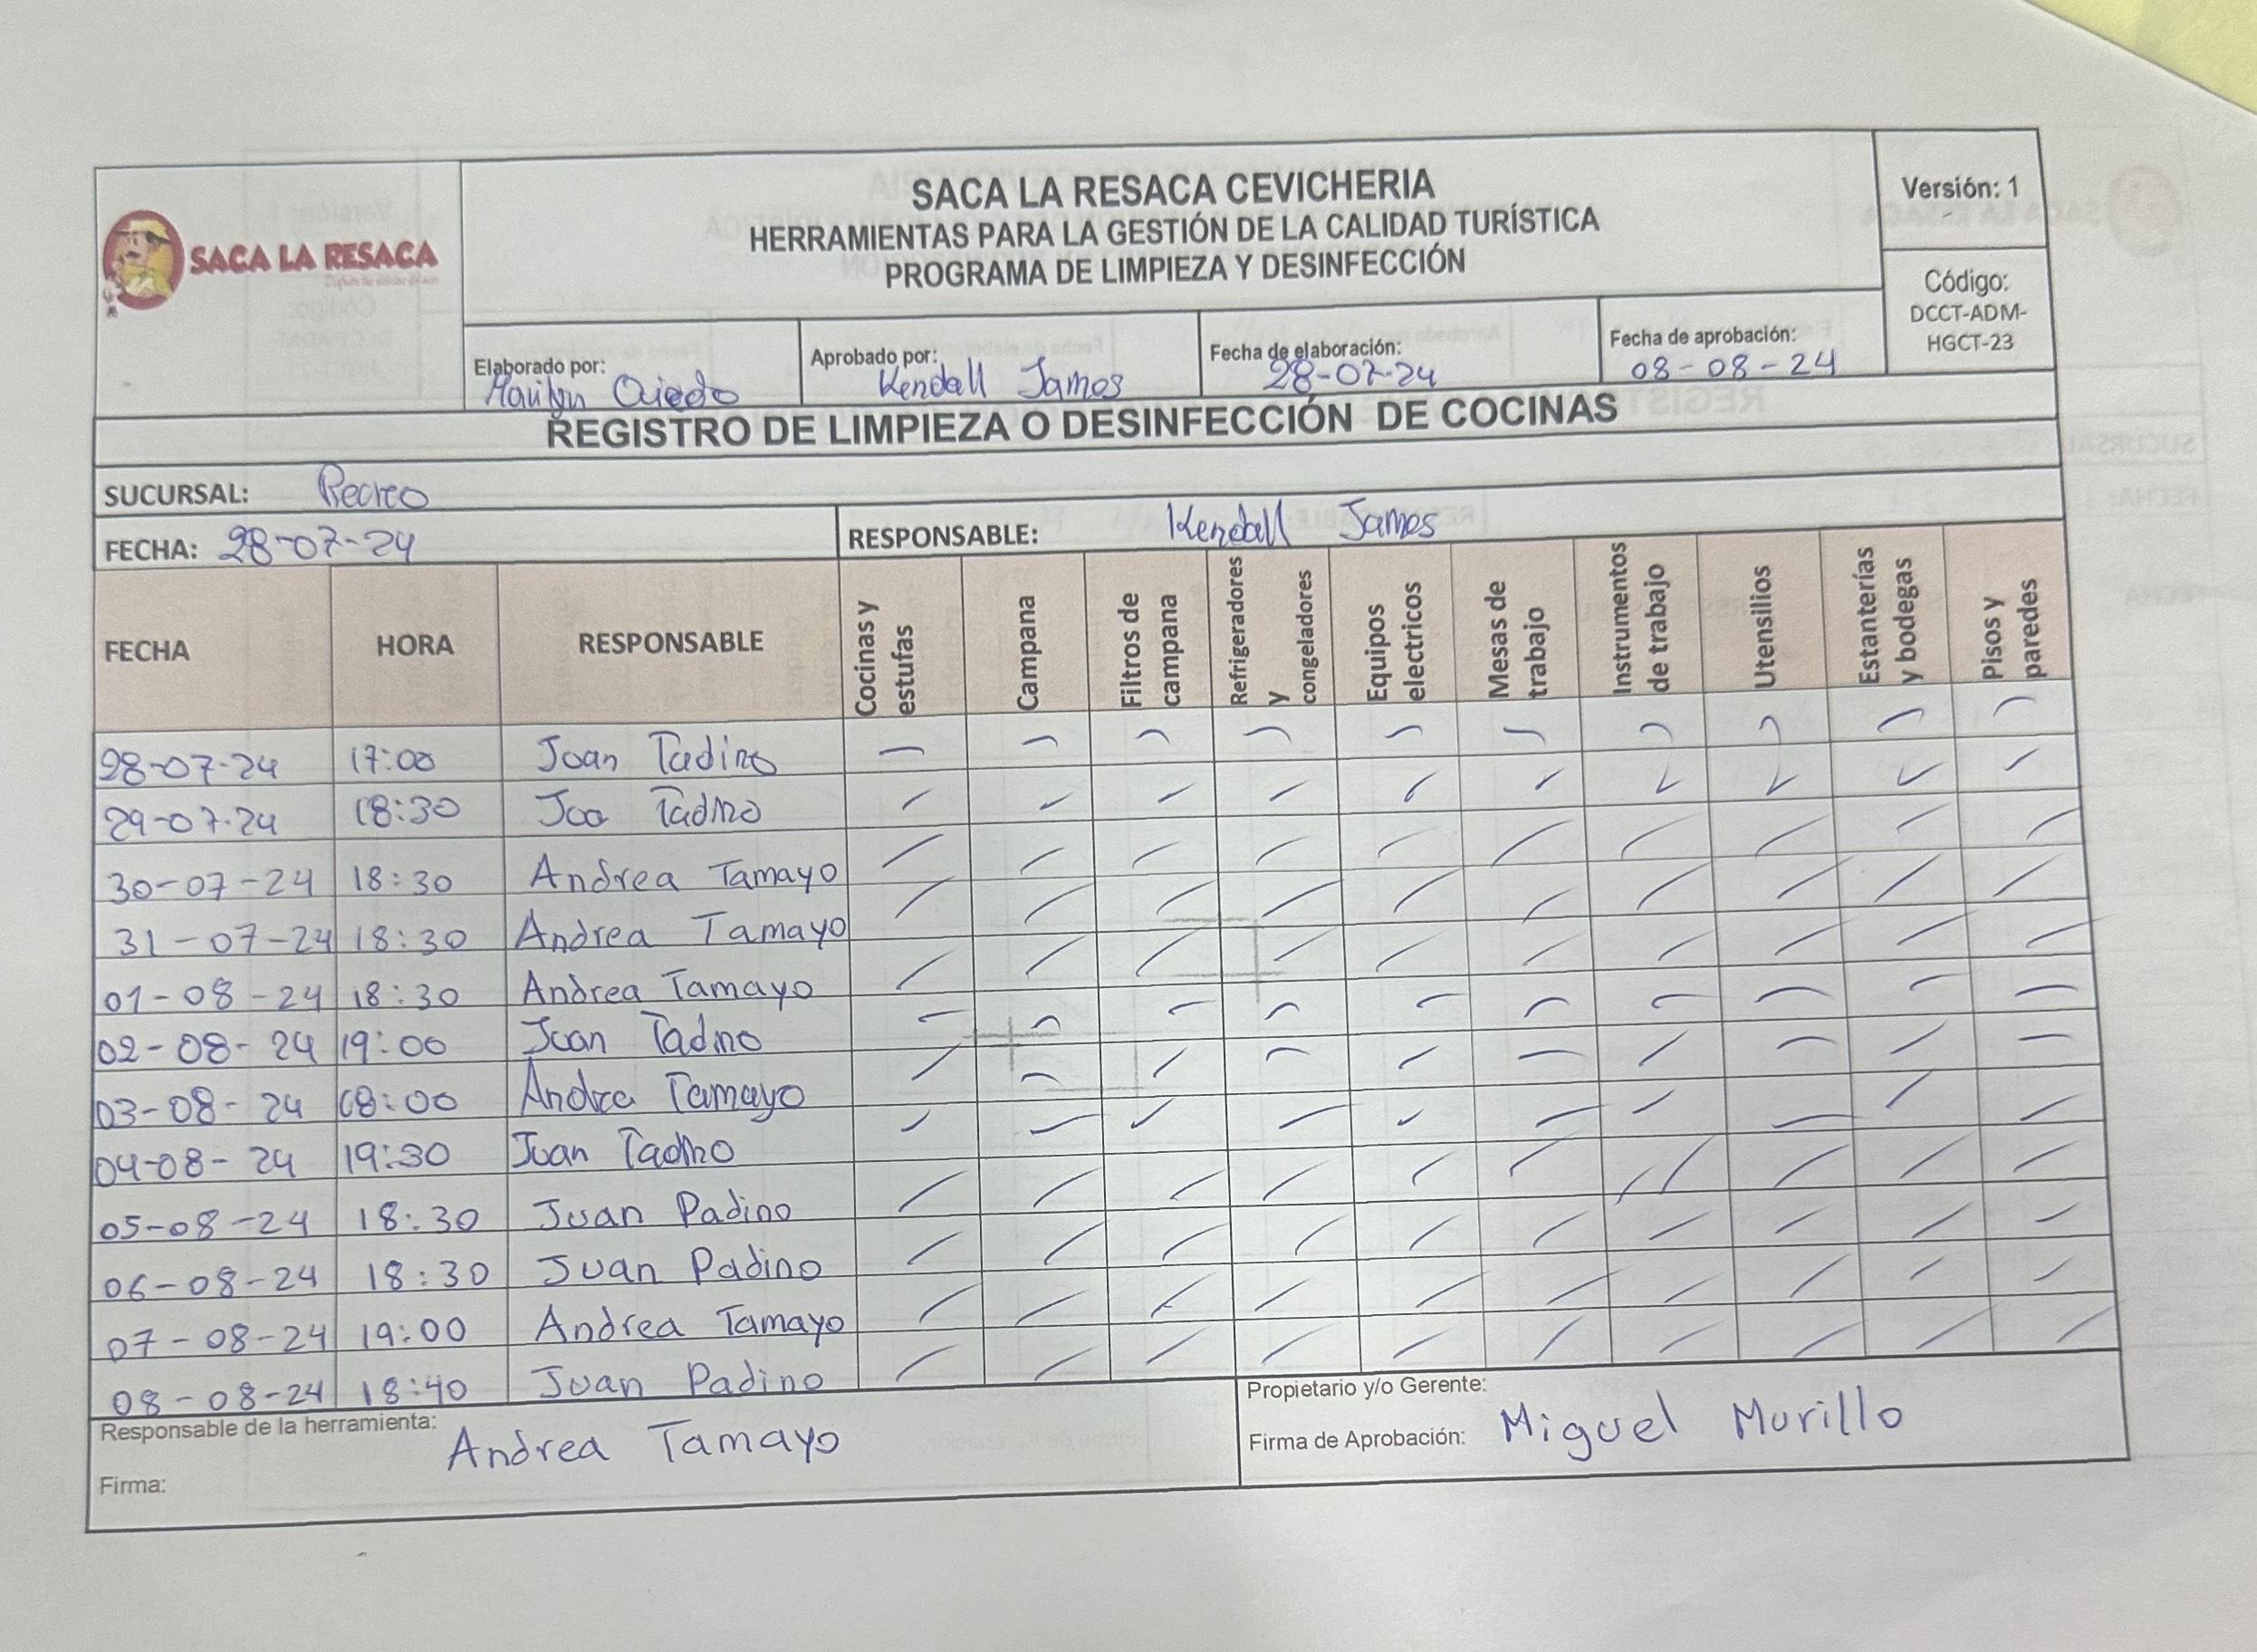 SACA LA RESACA
SACA LA RESACA CEVICHERIA
HERRAMIENTAS PARA LA GESTIÓN DE LA CALIDAD TURÍSTICA
PROGRAMA DE LIMPIEZA Y DESINFECCIÓN
Versión: 1
Código:
DCCT-ADM-
HGCT-23
Elaborado por:
Aprobado por: Kendall James
Fecha de elaboración: 28-07-24
Fecha de aprobación: 08-08-24
REGISTRO DE LIMPIEZA O DESINFECCIÓN DE COCINAS
SUCURSAL: Recreo
FECHA: 28-07-24 RESPONSABLE: Kendall James
FECHA HORA RESPONSABLE Cocinas y estufas Campana Filtros de campana Refrigeradores y congeladores Equipos electricos Mesas de trabajo Instrumentos de trabajo Utensilios Estanterías y bodegas Pisos y paredes
28-07-24 17:00 Joan Tadino
29-07-24 18:30 Joa Tadino
30-07-24 18:30 Andrea Tamayo
31-07-24 18:30 Andrea Tamayo
01-08-24 18:30 Andrea Tamayo
02-08-24 19:00 Juan Tadino
03-08-24 08:00 Andrea Tamayo
04-08-24 19:30 Juan Tadino
05-08-24 18:30 Juan Padino
06-08-24 18:30 Juan Padino
07-08-24 19:00 Andrea Tamayo
08-08-24 18:40 Juan Padino
Responsable de la herramienta: Andrea Tamayo
Firma:
Propietario y/o Gerente:
Firma de Aprobación: Miguel Murillo